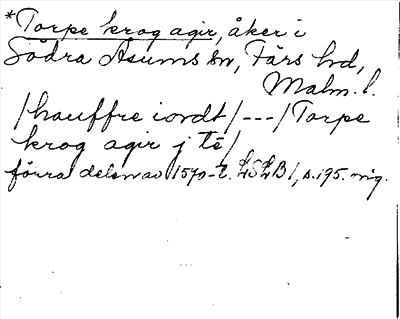 *Torpe krog agir, åker i
Södra Åsums sn, Färs hd,
Malm. l.
/hauffre iordt/---/Torpe
krog agir j tē/
förra delen av 1570-t. LSLB 1, s. 195. mg.